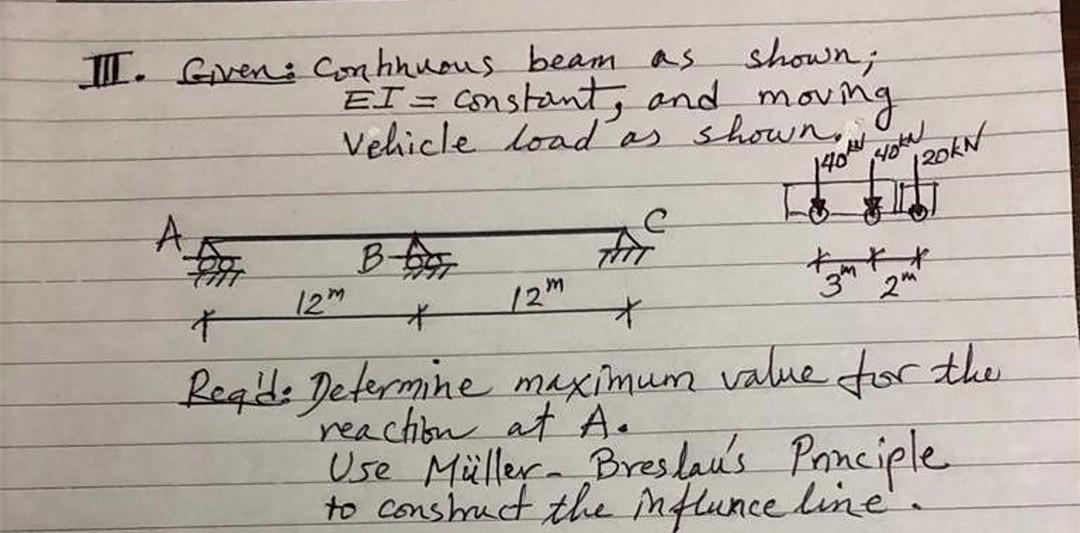 III. Given: Continuous beam as shown;
EI = constant, and moving
Vehicle load as shown.
40kN 40kN 20kN
A B C
3m 2m
12m 12m
Req'd: Determine maximum value for the
reaction at A.
Use Müller-Breslau's Principle
to construct the influnce line.